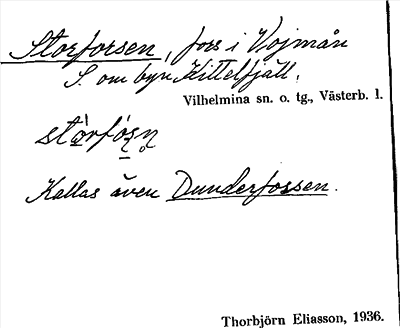 Storforsen, fors i Vojmån
S. om byn Kittelfjäll.
Vilhelmina sn. o. tg., Västerb. l.
Kallas även Dunderfossen.
Thorbjörn Eliasson, 1936.